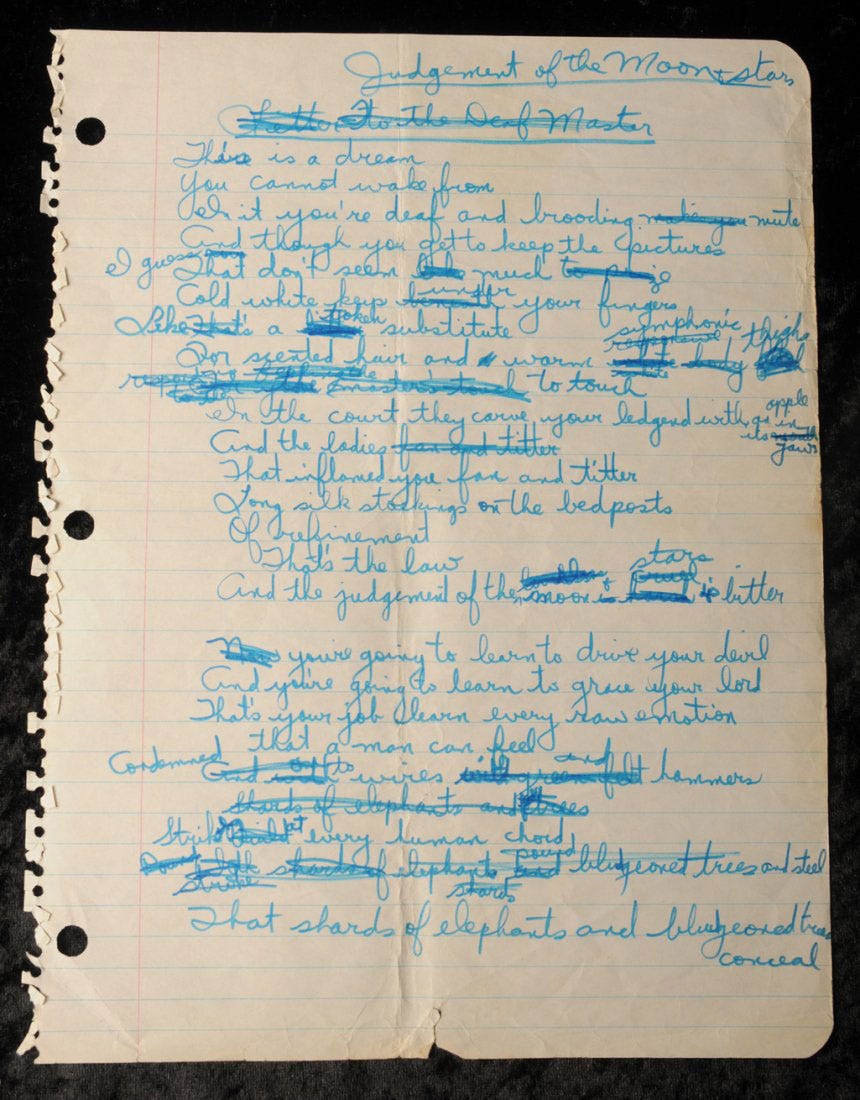 Judgement of the Moon + stars
Letter to the Deaf Master
There is a dream
You cannot wake from
In it you're deaf and brooding make you mute
And though you get to keep the pictures
I guess That don't seem like much to
Cold white keys under your fingers
Like That's a token substitute
symphonic thighs
For scented hair and warm body
master's touch to touch
In the court they carve your ledgend with an apple in
its mouth jaws
And the ladies fan and titter
That inflamed you fan and titter
Long silk stockings on the bedposts
Of refinement
That's the law
stars
And the judgement of the moon + is bitter
Now you're going to learn to drive your devil
And you're going to learn to grace your lord
That's your job learn every raw emotion
that a man can feel
Condemned to and
And wires with green felt hammers
shards of elephants and trees
Strike at every human chord
pound
shards of elephants and bludgeoned trees and steel
strike shards
That shards of elephants and bludgeoned trees
conceal